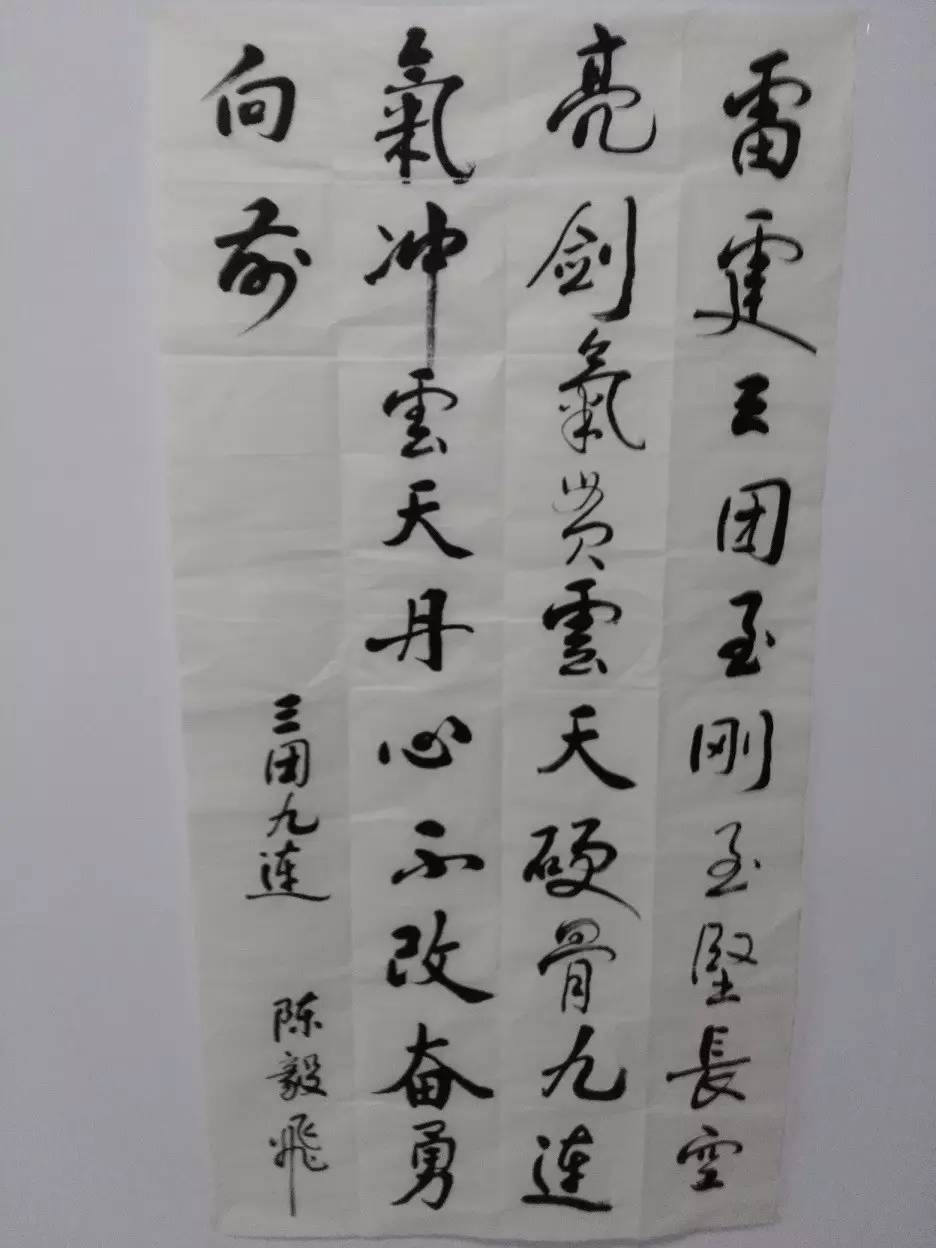 雷霆三团至刚至坚長空
亮剑氣贯雲天硬骨九連
氣冲雲天丹心不改奋勇
向前
三团九連 陈毅飛